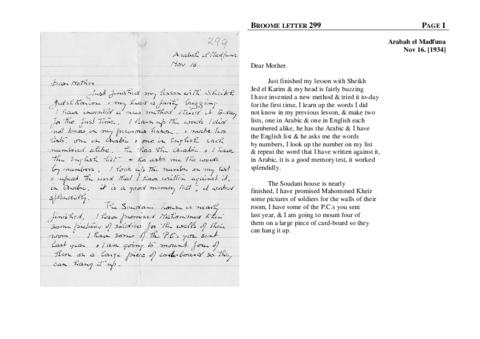 299
Arabah el Madfuna
Nov 16.
Dear Mother.
Just finished my lesson with Sheikh
Jed el Karim & my head is fairly buzzing
I have invented a new method & tried it to-day
for the first time, I learn up the words I did
not know in my previous lesson, & make two
lists, one in Arabic & one in English each
numbered alike, he has the Arabic & I have
the English list & he asks me the words
by numbers, I look up the number on my list
& repeat the word that I have written against it,
in Arabic, it is a good memory test, it worked
splendidly.
The Soudani house is nearly
finished, I have promised Mahommed Kheir
some pictures of soldiers for the walls of their
room, I have some of the P.C.s you sent
last year, & I am going to mount four of
them on a large piece of card-board so they
can hang it up.
BROOME LETTER 299 PAGE 1
Arabah el Madfuna
Nov 16. [1934]
Dear Mother.
Just finished my lesson with Sheikh
Jed el Karim & my head is fairly buzzing
I have invented a new method & tried it to-day
for the first time, I learn up the words I did
not know in my previous lesson, & make two
lists, one in Arabic & one in English each
numbered alike, he has the Arabic & I have
the English list & he asks me the words
by numbers, I look up the number on my list
& repeat the word that I have written against it,
in Arabic, it is a good memory test, it worked
splendidly.
The Soudani house is nearly
finished, I have promised Mahommed Kheir
some pictures of soldiers for the walls of their
room, I have some of the P.C.s you sent
last year, & I am going to mount four of
them on a large piece of card-board so they
can hang it up.